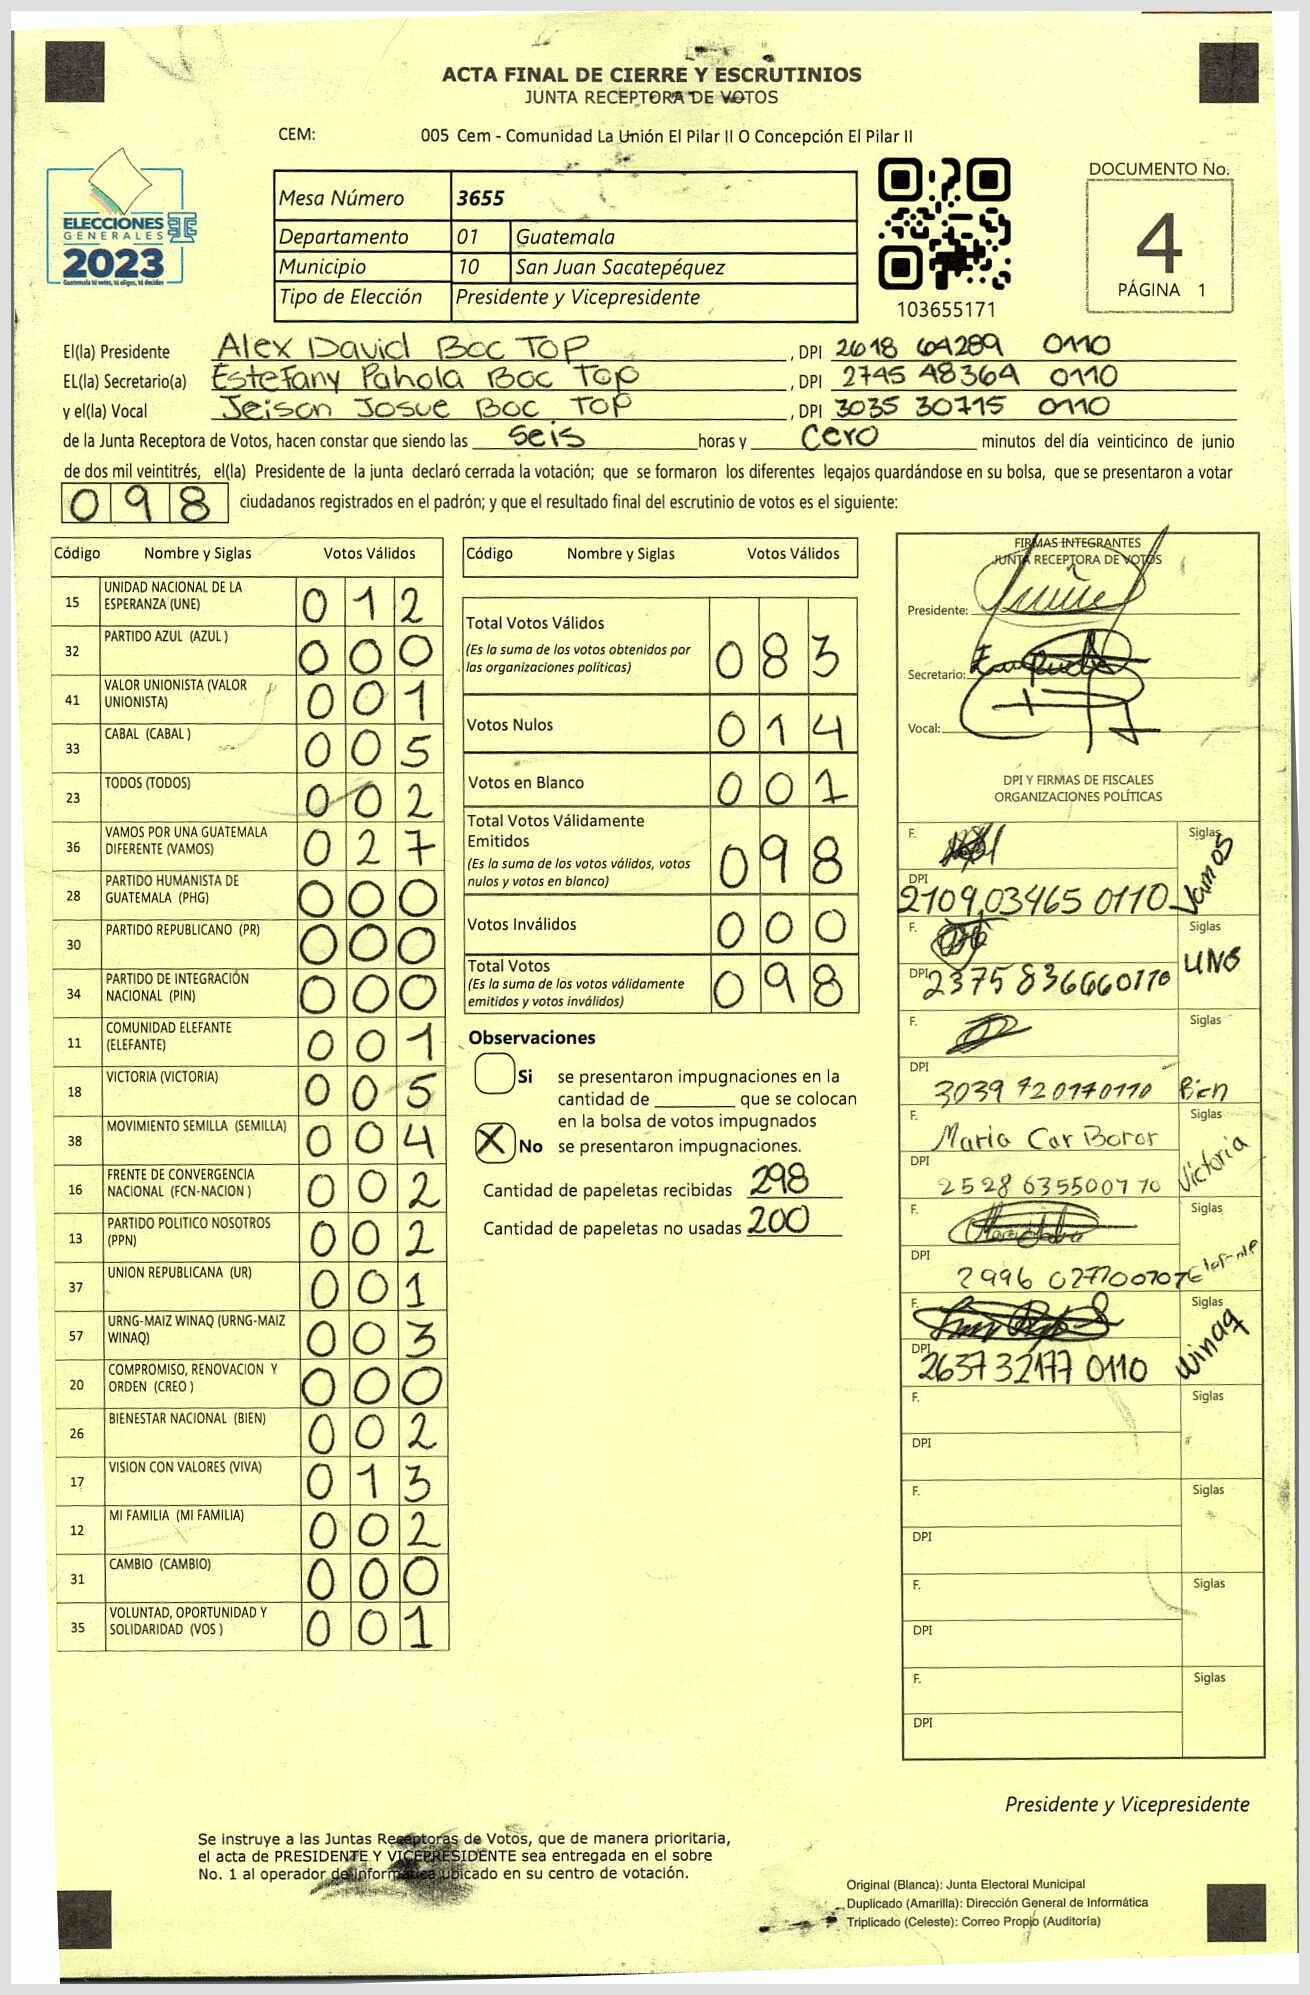 ACTA FINAL DE CIERRE Y ESCRUTINIOS
JUNTA RECEPTORA DE VOTOS
CEM: 005 Cem - Comunidad La Unión El Pilar II O Concepción El Pilar II
ELECCIONES
GENERALES
2023
Guatemala tú votas, tú eliges, tú decides
Mesa Número 3655
Departamento 01 Guatemala
Municipio 10 San Juan Sacatepéquez
Tipo de Elección Presidente y Vicepresidente
103655171
DOCUMENTO No.
4
PÁGINA 1
El(la) Presidente Alex David Boc Top , DPI 2618 64289 0110
EL(la) Secretario(a) Estefany Pahola Boc Top , DPI 2745 48364 0110
y el(la) Vocal Jeison Josue Boc Top , DPI 3035 30715 0110
de la Junta Receptora de Votos, hacen constar que siendo las seis horas y cero minutos del día veinticinco de junio
de dos mil veintitrés, el(la) Presidente de la junta declaró cerrada la votación; que se formaron los diferentes legajos guardándose en su bolsa, que se presentaron a votar
098 ciudadanos registrados en el padrón; y que el resultado final del escrutinio de votos es el siguiente:
Código Nombre y Siglas Votos Válidos
15 UNIDAD NACIONAL DE LA ESPERANZA (UNE) 012
32 PARTIDO AZUL (AZUL ) 000
41 VALOR UNIONISTA (VALOR UNIONISTA) 001
33 CABAL (CABAL ) 005
23 TODOS (TODOS) 002
36 VAMOS POR UNA GUATEMALA DIFERENTE (VAMOS) 027
28 PARTIDO HUMANISTA DE GUATEMALA (PHG) 000
30 PARTIDO REPUBLICANO (PR) 000
34 PARTIDO DE INTEGRACIÓN NACIONAL (PIN) 000
11 COMUNIDAD ELEFANTE (ELEFANTE) 001
18 VICTORIA (VICTORIA) 005
38 MOVIMIENTO SEMILLA (SEMILLA) 004
16 FRENTE DE CONVERGENCIA NACIONAL (FCN-NACION ) 002
13 PARTIDO POLITICO NOSOTROS (PPN) 002
37 UNION REPUBLICANA (UR) 001
57 URNG-MAIZ WINAQ (URNG-MAIZ WINAQ) 003
20 COMPROMISO, RENOVACION Y ORDEN (CREO ) 000
26 BIENESTAR NACIONAL (BIEN) 002
17 VISION CON VALORES (VIVA) 013
12 MI FAMILIA (MI FAMILIA) 002
31 CAMBIO (CAMBIO) 000
35 VOLUNTAD, OPORTUNIDAD Y SOLIDARIDAD (VOS ) 001
Código Nombre y Siglas Votos Válidos
Total Votos Válidos 083
(Es la suma de los votos obtenidos por
las organizaciones políticas)
Votos Nulos 014
Votos en Blanco 001
Total Votos Válidamente
Emitidos 098
(Es la suma de los votos válidos, votos
nulos y votos en blanco)
Votos Inválidos 000
Total Votos 098
(Es la suma de los votos válidamente
emitidos y votos inválidos)
Observaciones
Si se presentaron impugnaciones en la
cantidad de ________ que se colocan
en la bolsa de votos impugnados
X No se presentaron impugnaciones.
Cantidad de papeletas recibidas 298
Cantidad de papeletas no usadas 200
FIRMAS INTEGRANTES
JUNTA RECEPTORA DE VOTOS
Presidente:
Secretario:
Vocal:
DPI Y FIRMAS DE FISCALES
ORGANIZACIONES POLÍTICAS
F. Siglas
DPI 2109 03465 0110 Vamos
F. Siglas
DPI 2375 836660110 UNE
F. Siglas
DPI 3039 920170110 Bien
F. Maria Car Boror Siglas
DPI 2528 635500110 Victoria
F. Siglas
DPI 2996 027700707
F. Siglas
DPI 2637 32177 0110 Winaq
F. Siglas
DPI
F. Siglas
DPI
F. Siglas
DPI
F. Siglas
DPI
Presidente y Vicepresidente
Se instruye a las Juntas Receptoras de Votos, que de manera prioritaria,
el acta de PRESIDENTE Y VICEPRESIDENTE sea entregada en el sobre
No. 1 al operador de informática ubicado en su centro de votación.
Original (Blanca): Junta Electoral Municipal
Duplicado (Amarilla): Dirección General de Informática
Triplicado (Celeste): Correo Propio (Auditoría)